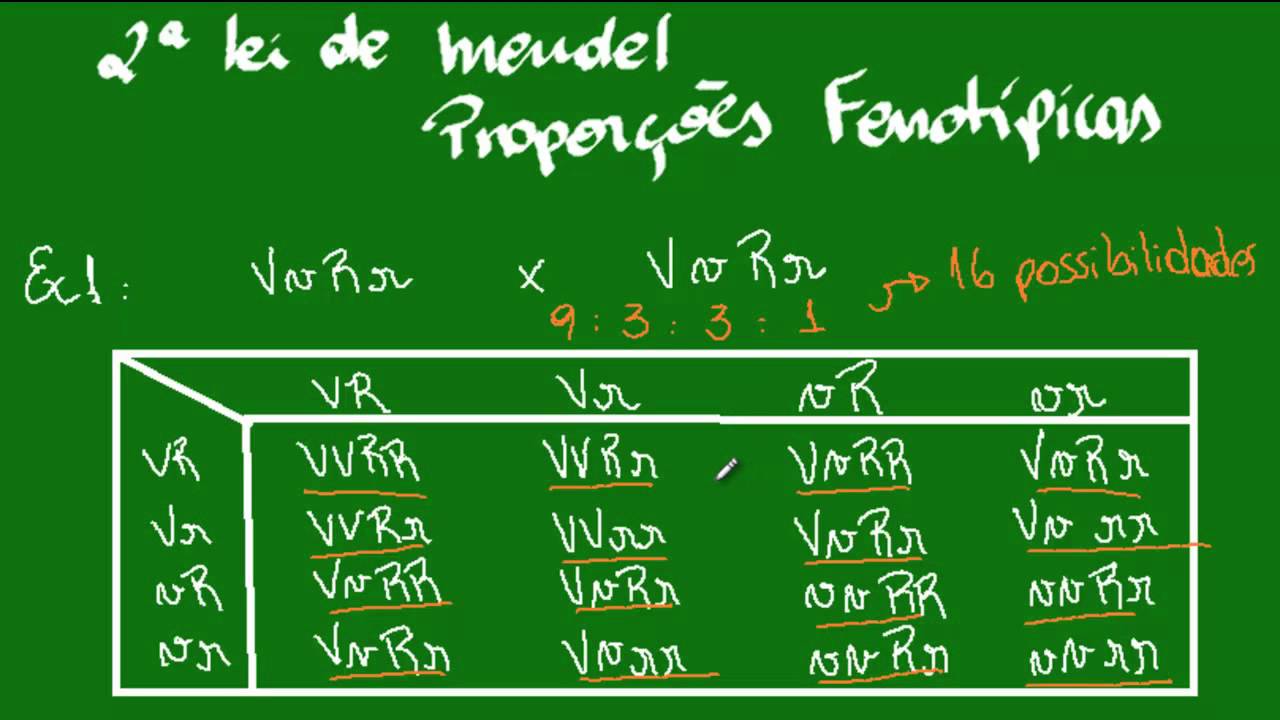 2ª lei de mendel
Proporções Fenotípicas
Ex1: VvRr x VvRr
9 : 3 : 3 : 1 → 16 possibilidades
VR Vr vR vr
VR VVRR VVRr VvRR VvRr
Vr VVRr VVrr VvRr Vv rr
vR VvRR VvRr vvRR vvRr
vr VvRr Vvrr vvRr vvrr